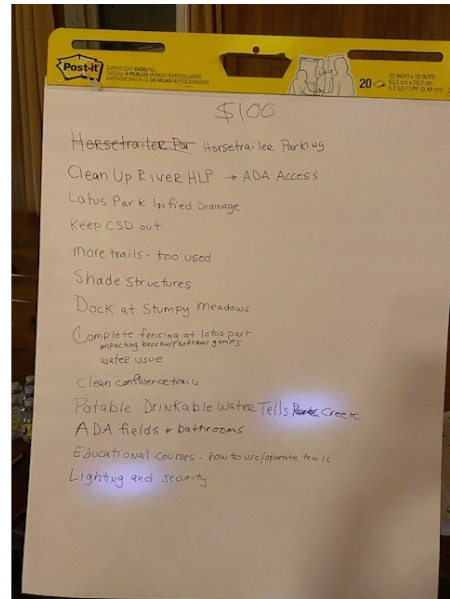 Post-it
SUPERSTICKY EASEL PAD
20
$100
Horsetrailer Par Horsetrailer Parking
Clean Up River HLP → ADA Access
Lotus Park Infied Drainage
Keep CSD out
more trails - too used
Shade Structures
Dock at Stumpy Meadows
Complete fencing at lotus part
impacting baseball/softball games
water issue
Clean confluence trails
Potable Drinkable Water Tells Creek
ADA fields + bathrooms
Educational courses - how to use/operate trails
Lighting and security